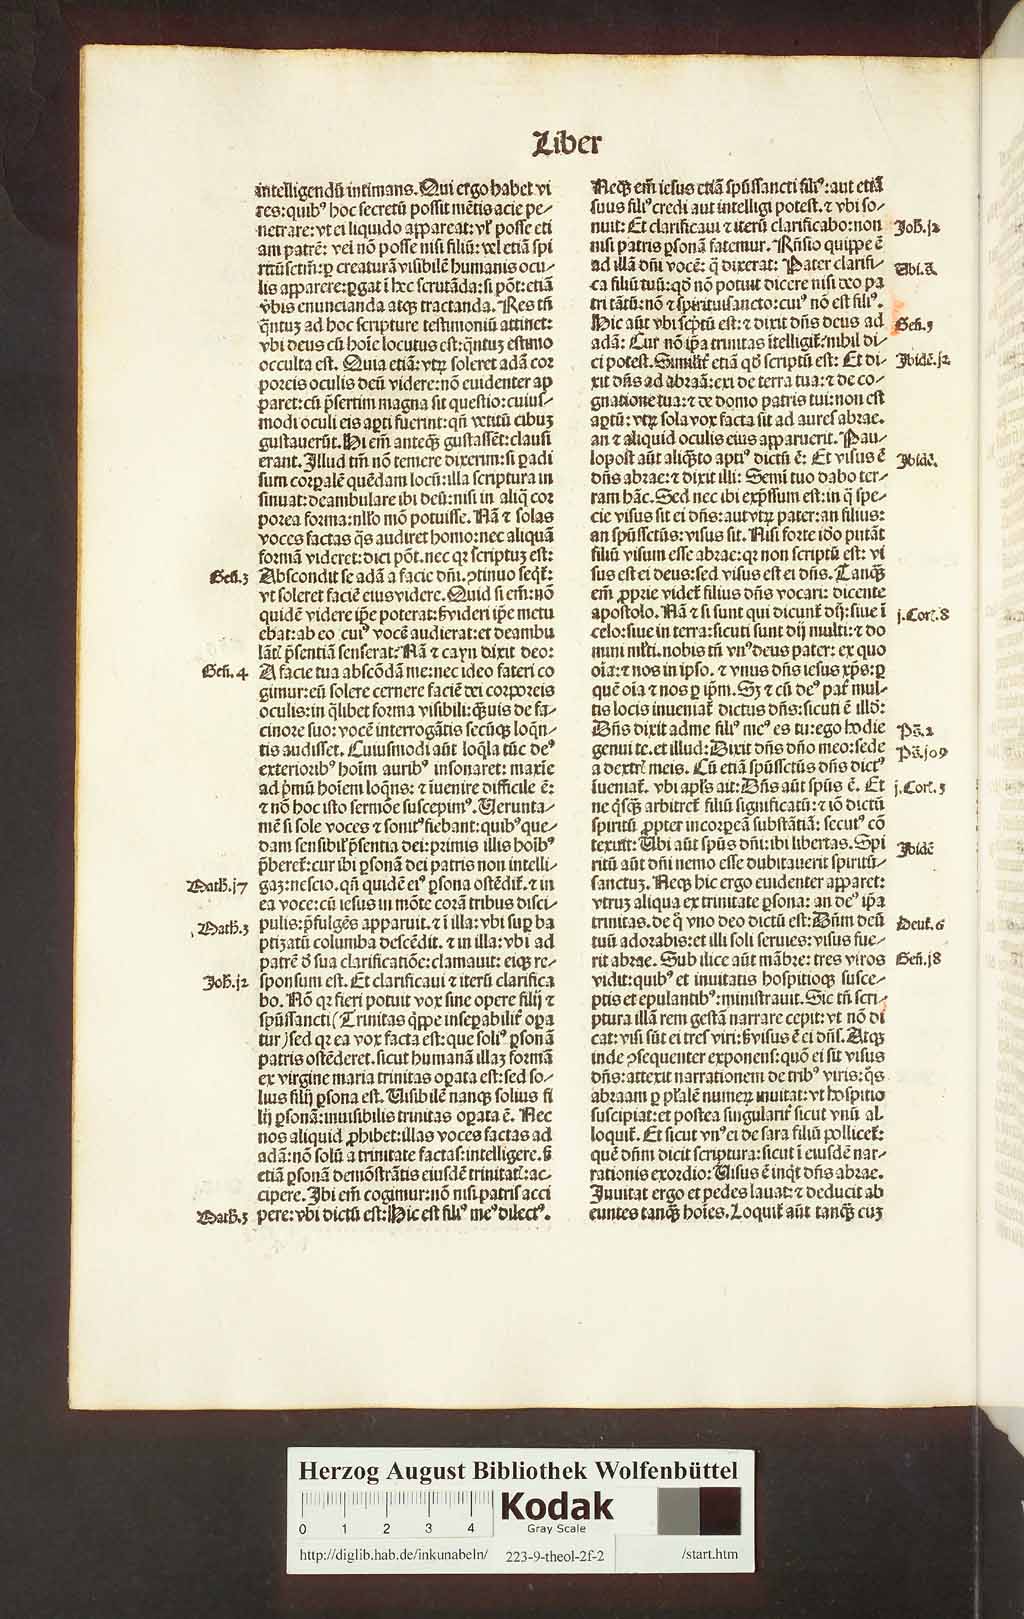 Liber
intelligendũ intimans. Qui ergo habet vi
res: quibꝰ hoc secretũ possit mẽtis acie pe⸗
netrare: vt ei liquido appareat: vł posse eti
am patrẽ: vel nõ posse nisi filiũ: vel etiã spi
ritũsctm̃: ꝑ creaturã visibilẽ humanis ocu⸗
lis apparere: ꝑgat ĩ hec scrutãda: si põt: etiã
vͦbis enuncianda atqꝫ tractanda. Res tñ
q̃ntuꝫ ad hoc scripture testimoniũ attinet:
vbi deus cũ hoĩe locutus est: q̃ntuꝫ estimo
occulta est. Quia etiã: vtꝝ soleret adã cor
poreis oculis deũ videre: nõ euidenter ap
paret: cũ p̃sertim magna sit questio: cuius⸗
modi oculi eis aꝑti fuerint: qñ vetitũ cibuꝫ
gustauerũt. Hi em̃ anteqꝫ gustassẽt: clausi
erant. Illud tm̃ nõ temere dixerim: si ꝑadi
sum corꝑalẽ quẽdam locũ: illa scriptura in
sinuat: deambulare ibi deũ: nisi in aliq̃ cor
porea forma: nłło mõ potuisse. Nã ⁊ solas
voces factas q̃s audiret homo: nec aliquã
formã videret: dici põt. nec qꝛ scriptuꝫ est:
Geñ. 3
Abscondit se adã a facie dñi. ꝯtinuo seqͥt̃:
vt soleret faciẽ eius videre. Quid si em̃: nõ
quidẽ videre ip̃e poterat: sꝫ videri ip̃e metu
ebat: ab eo cuiꝰ vocẽ audierat: et deambu
lãtꝭ p̃sentiã senserat: Nã ⁊ cayn dixit deo:
Geñ. 4
A facie tua abscõdã me: nec ideo fateri co
gimur: eũ solere cernere faciẽ dei corporeis
oculis: in q̃libet forma visibili: q̃ꝫuis de fa⸗
cinore suo: vocẽ interrogãtis secũqꝫ loq̃n⸗
tis audisset. Cuiusmodi aũt loq̃la tũc deꝰ
exterioribꝰ hoĩm auribꝰ insonaret: maxĩe
ad p̃mũ hoĩem loq̃ns: ⁊ ĩuenire difficile ẽ:
⁊ nõ hoc isto sermõe suscepimꝰ. Verunta⸗
mẽ si sole voces ⁊ sonitꝰ fiebant: quibꝰ que⸗
dam sensibilꝭ p̃sentia dei: primis illis hoĩbꝰ
p̃beret̃: cur ibi ꝑsonã dei patris non intelli⸗
Math. j7
gaꝫ: nescio. qñ quidẽ eiꝰ ꝑsona ostẽdit̃. ⁊ in
ea voce: cũ iesus in mõte corã tribus disci⸗
Math. 3
pulis: p̃fulgẽs apparuit. ⁊ ĩ illa: vbi suꝑ ba
ptizatũ columba descẽdit. ⁊ in illa: vbi ad
patrẽ d̓ sua clarificatiõe: clamauit: eiqꝫ re⸗
Joh. j2
sponsum est. Et clarificaui ⁊ iterũ clarifica
bo. Nõ qꝛ fieri potuit vox sine opere filij ⁊
sp̃ussancti (Trinitas q̃ppe inseꝑabilit̃ oꝑa
tur) sed qꝛ ea vox facta est: que soliꝰ ꝑsonã
patris ostẽderet. sicut humanã illaꝫ formã
ex virgine maria trinitas oꝑata est: sed so⸗
lius filij ꝑsona est. Visibilẽ nanqꝫ solius fi
lij ꝑsonã: inuisibilis trinitas oꝑata ẽ. Nec
nos aliquid ꝓhibet: illas voces factas ad
adã: nõ solũ a trinitate factas: intelligere. sꝫ
etiã ꝑsonã demõstrãtis eiusdẽ trinitatꝭ: ac⸗
cipere. Ibi em̃ cogimur: nõ nisi patris acci
Math. 3
pere: vbi dictũ est: Hic est filiꝰ meꝰ dilectꝰ.
Neqꝫ em̃ iesus etiã sp̃ussancti filiꝰ: aut etiã
suus filiꝰ credi aut intelligi potest. ⁊ vbi so⸗
nuit: Et clarificaui ⁊ iterũ clarificabo: non
Joh. j2
nisi patris ꝑsonã fatemur. Rñsio quippe ẽ
ad illã dñi vocẽ: q̃ dixerat: Pater clarifi⸗
Vbi. s̃.
ca filiũ tuũ: qd̓ nõ potuit dicere nisi deo pa
tri tãtũ: nõ ⁊ spirituisancto: cuiꝰ nõ est filiꝰ.
Hic aũt vbi scp̃tũ est: ⁊ dixit dñs deus ad
Geñ. 3
adã: Cur nõ ip̃a trinitas ĩtelligit̃: nihil di⸗
ci potest. Similit̃ etiã qd̓ scriptũ est: Et di⸗
Ibidẽ. j2
xit dñs ad abraã: exi de terra tua: ⁊ de co⸗
gnatione tua: ⁊ de domo patris tui: non est
aꝑtũ: vtꝝ sola vox facta sit ad aures abrae.
an ⁊ aliquid oculis eius apparuerit. Pau⸗
lopost aũt aliq̃to aꝑtiꝰ dictũ ẽ: Et visus ẽ
Ibidẽ.
dñs abrae: ⁊ dixit illi: Semĩ tuo dabo ter⸗
ram hãc. Sed nec ibi exp̃ssum est: in q̃ spe⸗
cie visus sit ei dñs: aut vtꝝ pater: an filius:
an sp̃ussctũs: visus sit. Nisi forte iõo putãt
filiũ visum esse abrae: qꝛ non scriptũ est: vi
sus est ei deus: sed visus est ei dñs. Tanqꝫ
em̃ ꝓprie videt̃ filius dñs vocari: dicente
apostolo. Nã ⁊ si sunt qui dicunt̃ dij: siue ĩ
j. Corꝭ. 8
celo: siue in terra: sicuti sunt dij multi: ⁊ do
mini młti. nobis tñ vnꝰ deus pater: ex quo
oĩa: ⁊ nos in ipso. ⁊ vnus dñs iesus xp̃s: ꝑ
quẽ oĩa ⁊ nos ꝑ ip̃m. Sꝫ ⁊ cũ deꝰ pat̃ mul⸗
tis locis inueniat̃ dictus dñs: sicuti ẽ illd̓:
Dñs dixit ad me filiꝰ meꝰ es tu: ego hodie
Pš. 2
genui te. et illud: Dixit dñs dño meo: sede
Pš. jo9
a dextrꝭ meis. Cũ etiã sp̃ussctũs dñs dictꝰ
ĩueniat̃. vbi apl̃s ait: Dñs aũt sp̃us ẽ. Et
j. Corꝭ. 3
ne q̃sqꝫ arbitret̃ filiũ significatũ: ⁊ iõ dictũ
spiritũ ꝓpter incorꝑeã substãtiã: secutꝰ cõ
texuit: Vbi aũt sp̃us dñi: ibi libertas. Spi
Ibidẽ
ritũ aũt dñi nemo esse dubitauerit spiritũ⸗
sanctuꝫ. Neqꝫ hic ergo euidenter apparet:
vtruꝫ aliqua ex trinitate ꝑsona: an deꝰ ip̃a
trinitas. de q̃ vno deo dictũ est: Dñm deũ
Deut̃. 6
tuũ adorabis: et illi soli seruies: visus fue⸗
rit abrae. Sub ilice aũt mãbre: tres viros
Geñ. j8
vidit: quibꝰ et inuitatis hospitioqꝫ susce⸗
ptis et epulantibꝰ: ministrauit. Sic tñ scri⸗
ptura illã rem gestã narrare cepit: vt nõ di
cat: visi sũt ei tres viri: sꝫ visus ẽ ei dñs. Atqꝫ
inde ꝯsequenter exponens: quõ ei sit visus
dñs: attexit narrationem de tribꝰ viris: q̃s
abraam ꝑ pl̃ralẽ numeꝝ inuitat: vt hospitio
suscipiat: et postea singularit̃ sicut vnũ al
loquit̃. Et sicut vnꝰ ei de sara filiũ pollicet̃:
quẽ dñm dicit scriptura: sicut ĩ eiusdẽ nar⸗
rationis exordio: Visus ẽ inqͥt dñs abrae.
Inuitat ergo et pedes lauat: ⁊ deducit ab
euntes tanqꝫ hoĩes. Loquit̃ aũt tanqꝫ cuꝫ
Herzog August Bibliothek Wolfenbüttel
0 1 2 3 4
Kodak
Gray Scale
http://diglib.hab.de/inkunabeln/ 223-9-theol-2f-2 /start.htm